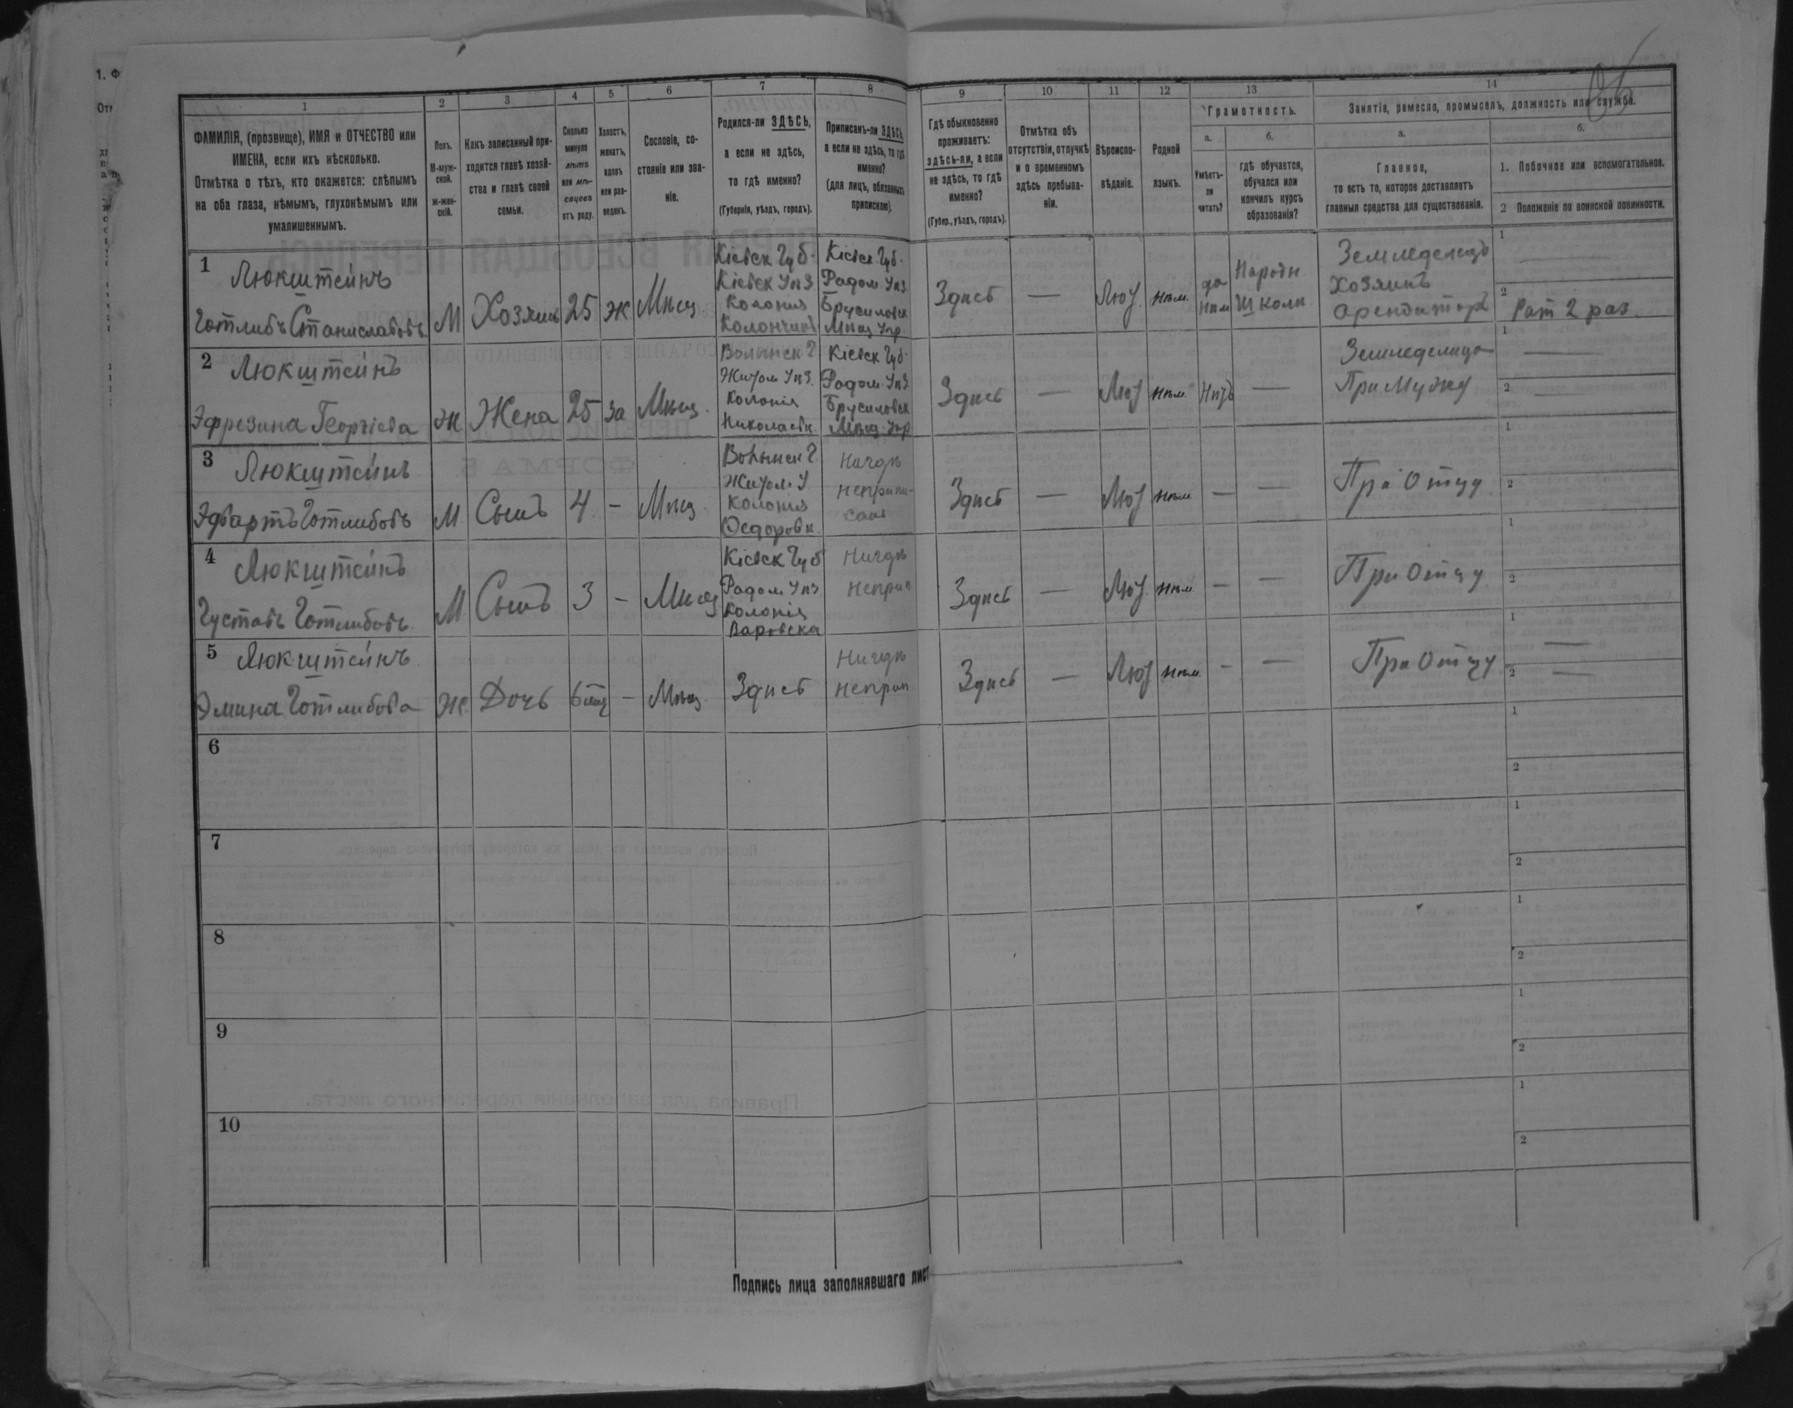 1. Ф
От
1 2 3 4 5 6 7 8 9 10 11 12 13 14
ФАМИЛІЯ, (прозвище), ИМЯ и ОТЧЕСТВО или
ИМЕНА, если ихъ нѣсколько.
Отмѣтка о тѣхъ, кто окажется: слѣпымъ
на оба глаза, нѣмымъ, глухонѣмымъ или
умалишеннымъ.
Полъ.
М-муж-
ской.
Ж-жен-
скій.
Какъ записанный при-
ходится главѣ хозяй-
ства и главѣ своей
семьи.
Сколько
минуло
лѣтъ
или мѣ-
сяцевъ
отъ роду.
Холостъ,
женатъ,
вдовъ
или раз-
веденъ.
Сословіе, со-
стояніе или зва-
ніе.
Родился-ли ЗДѢСЬ,
а если не здѣсь,
то гдѣ именно?
(Губернія, уѣздъ, городъ).
Приписанъ-ли ЗДѢСЬ,
а если не здѣсь, то гдѣ
именно?
(для лицъ, обязанныхъ
припискою).
Гдѣ обыкновенно
проживаетъ:
здѣсь-ли, а если
не здѣсь, то гдѣ
именно?
(Губер., уѣздъ, городъ).
Отмѣтка объ
отсутствіи, отлучкѣ
и о временномъ
здѣсь пребыва-
ніи.
Вѣроиспо-
вѣданіе.
Родной
языкъ.
Грамотность.
а.
Умѣетъ-
ли
читать?
б.
гдѣ обучается,
обучался или
кончилъ курсъ
образованія?
Занятіе, ремесло, промыселъ, должность или служба.
а.
Главное,
то есть то, которое доставляетъ
главныя средства для существованія.
б.
1. Побочное или вспомогательное.
2 Положеніе по воинской повинности.
1 Люкштейнъ
Готлибъ Станиславовъ
М Хозяинъ 25 ж Мѣщ
Кіевск Губ.
Кіевск Уѣз
Колонія
Кіевск Губ.
Радом Уѣз
Брусиловск
Мѣщ Упр
Здѣсь — Лют. нѣм.
да
нѣм
Народн
Школѣ
Земледелецъ
Хозяинъ
Арендаторъ
1 —
2 Рат 2 раз.
2 Люкштейнъ
Эфрезина Георгіева
Ж Жена 25 За Мѣщ.
Волынск Г
Житом Уѣз.
Колонія
Николаевк.
Кіевск Губ.
Радом. Уѣз
Брусиловск
Мѣщ. Упр
Здѣсь — Лют нѣм. Нѣтъ —
Земледелица
При Мужу
1 —
2 —
3 Люкштейнъ
Эдвартъ Готлибовъ
М Сынъ 4 – Мѣщ
Волынск Г
Житом. У
Колонія
Ѳедоровк.
Нигдѣ
неприпи-
сан
Здѣсь — Лют нѣм — —
При Отцу
1
2
4 Люкштейнъ
Густавъ Готлибовъ
М Сынъ 3 – Мѣщ
Кіевск Губ
Радом Уѣз
Колонія
Варовска
Нигдѣ
Неприп
Здѣсь — Лют нѣм – —
При Отцу
1
2
5 Люкштейнъ
Эмина Готлибова
Ж. Дочь 6 мѣс – Мѣщ.
Здѣсь
Нигдѣ
Неприп
Здѣсь — Лют нѣм. – —
При Отцу
1 —
2 —
6
1
2
7
1
2
8
1
2
9
1
2
10
1
2
Подпись лица заполнявшаго лист